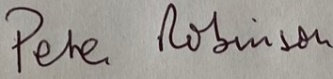 Peter Robinson